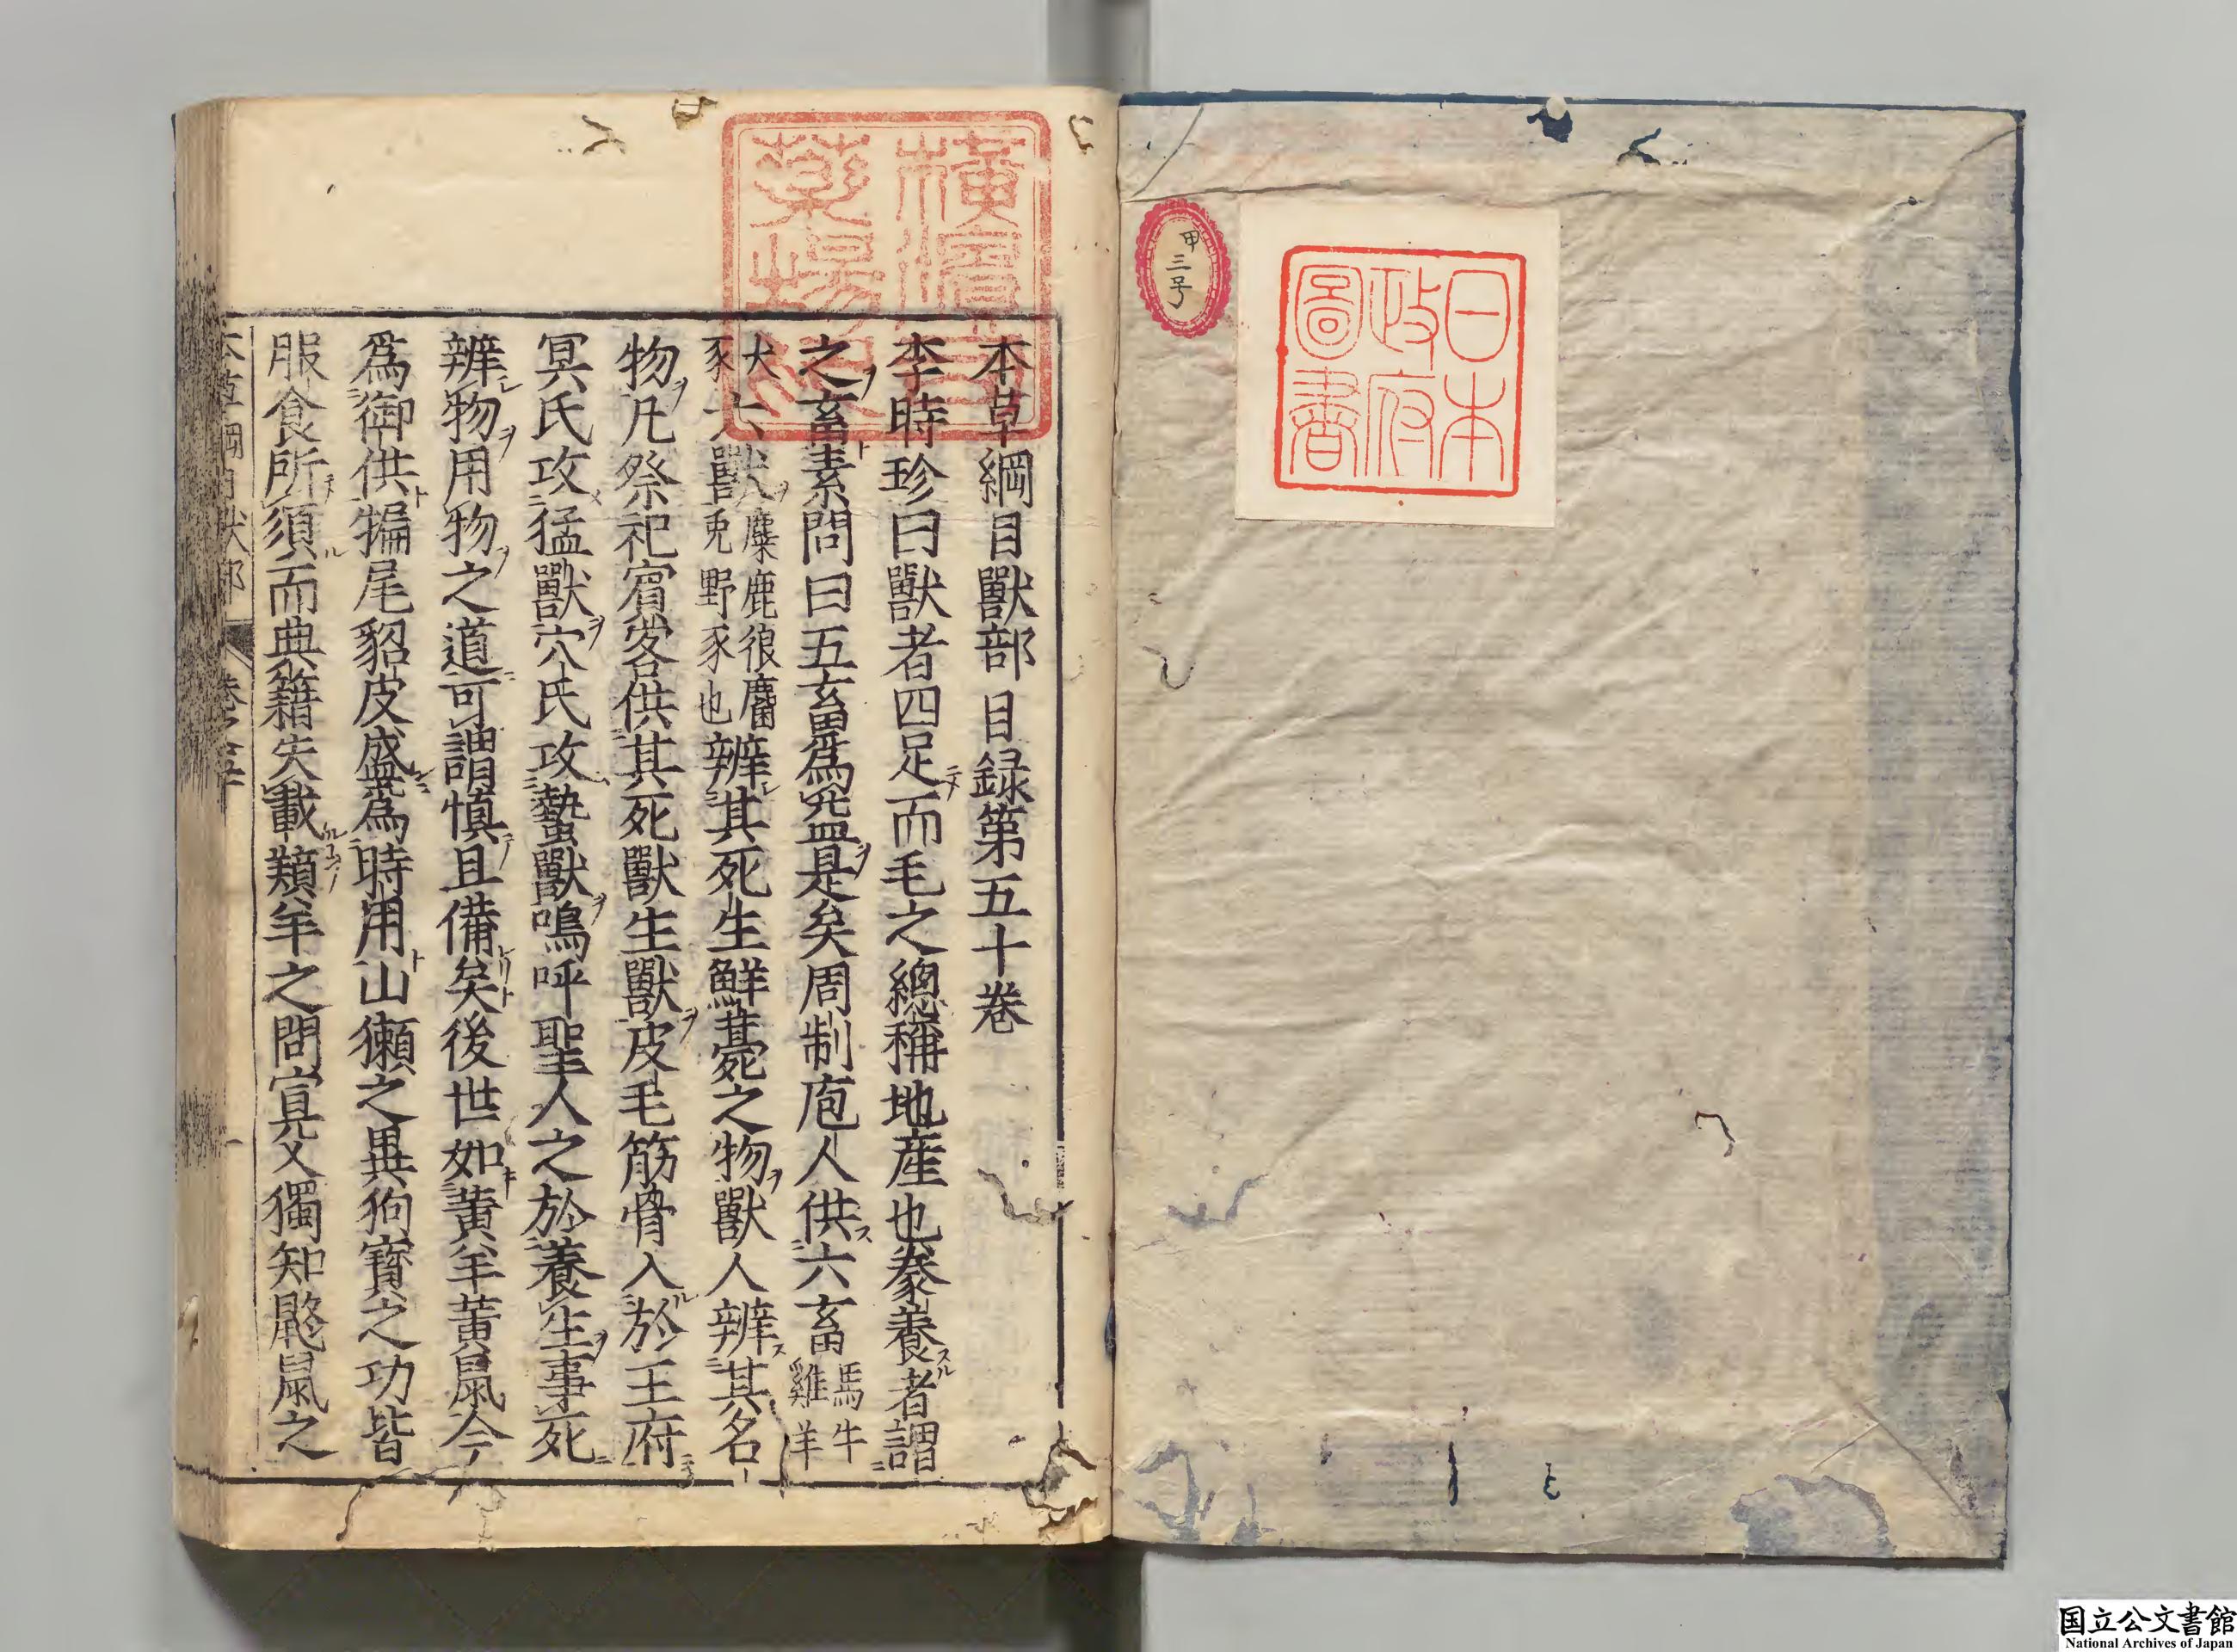 日本
政府
圖書
甲
三号
横濱
藥場
本草綱目獸部 目録第五十巻
李時珍曰獸者四足テ而毛之總稱地産也豢養スル者謂
之ヲ畜ト素問曰五畜爲益ヲ是矣周制庖人供ス六畜馬牛
雞羊
犬
豕六獸ヲ麋鹿狼麕
兎野豕也辨其死生鮮薧之物ヲ獸人辨ス其名
物ヲ凡祭祀賓客供其死獸生獸ヲ皮毛筋骨入ル於王府ニ
冥氏攻猛獸ヲ穴氏攻蟄獸ヲ嗚呼聖人之於養生ヲ事死ニ
辨物ヲ用物ヲ之道可謂慎且備矣ト後世如キ黄羊黄鼠今
爲御供ト㹑尾貂皮盛爲時用ト山獺之異狗寶之功皆
服食所須ル而典籍失載ルコヲ羵羊之問宣父獨知鼮鼠之
國立公文書館
National Archives of Japan